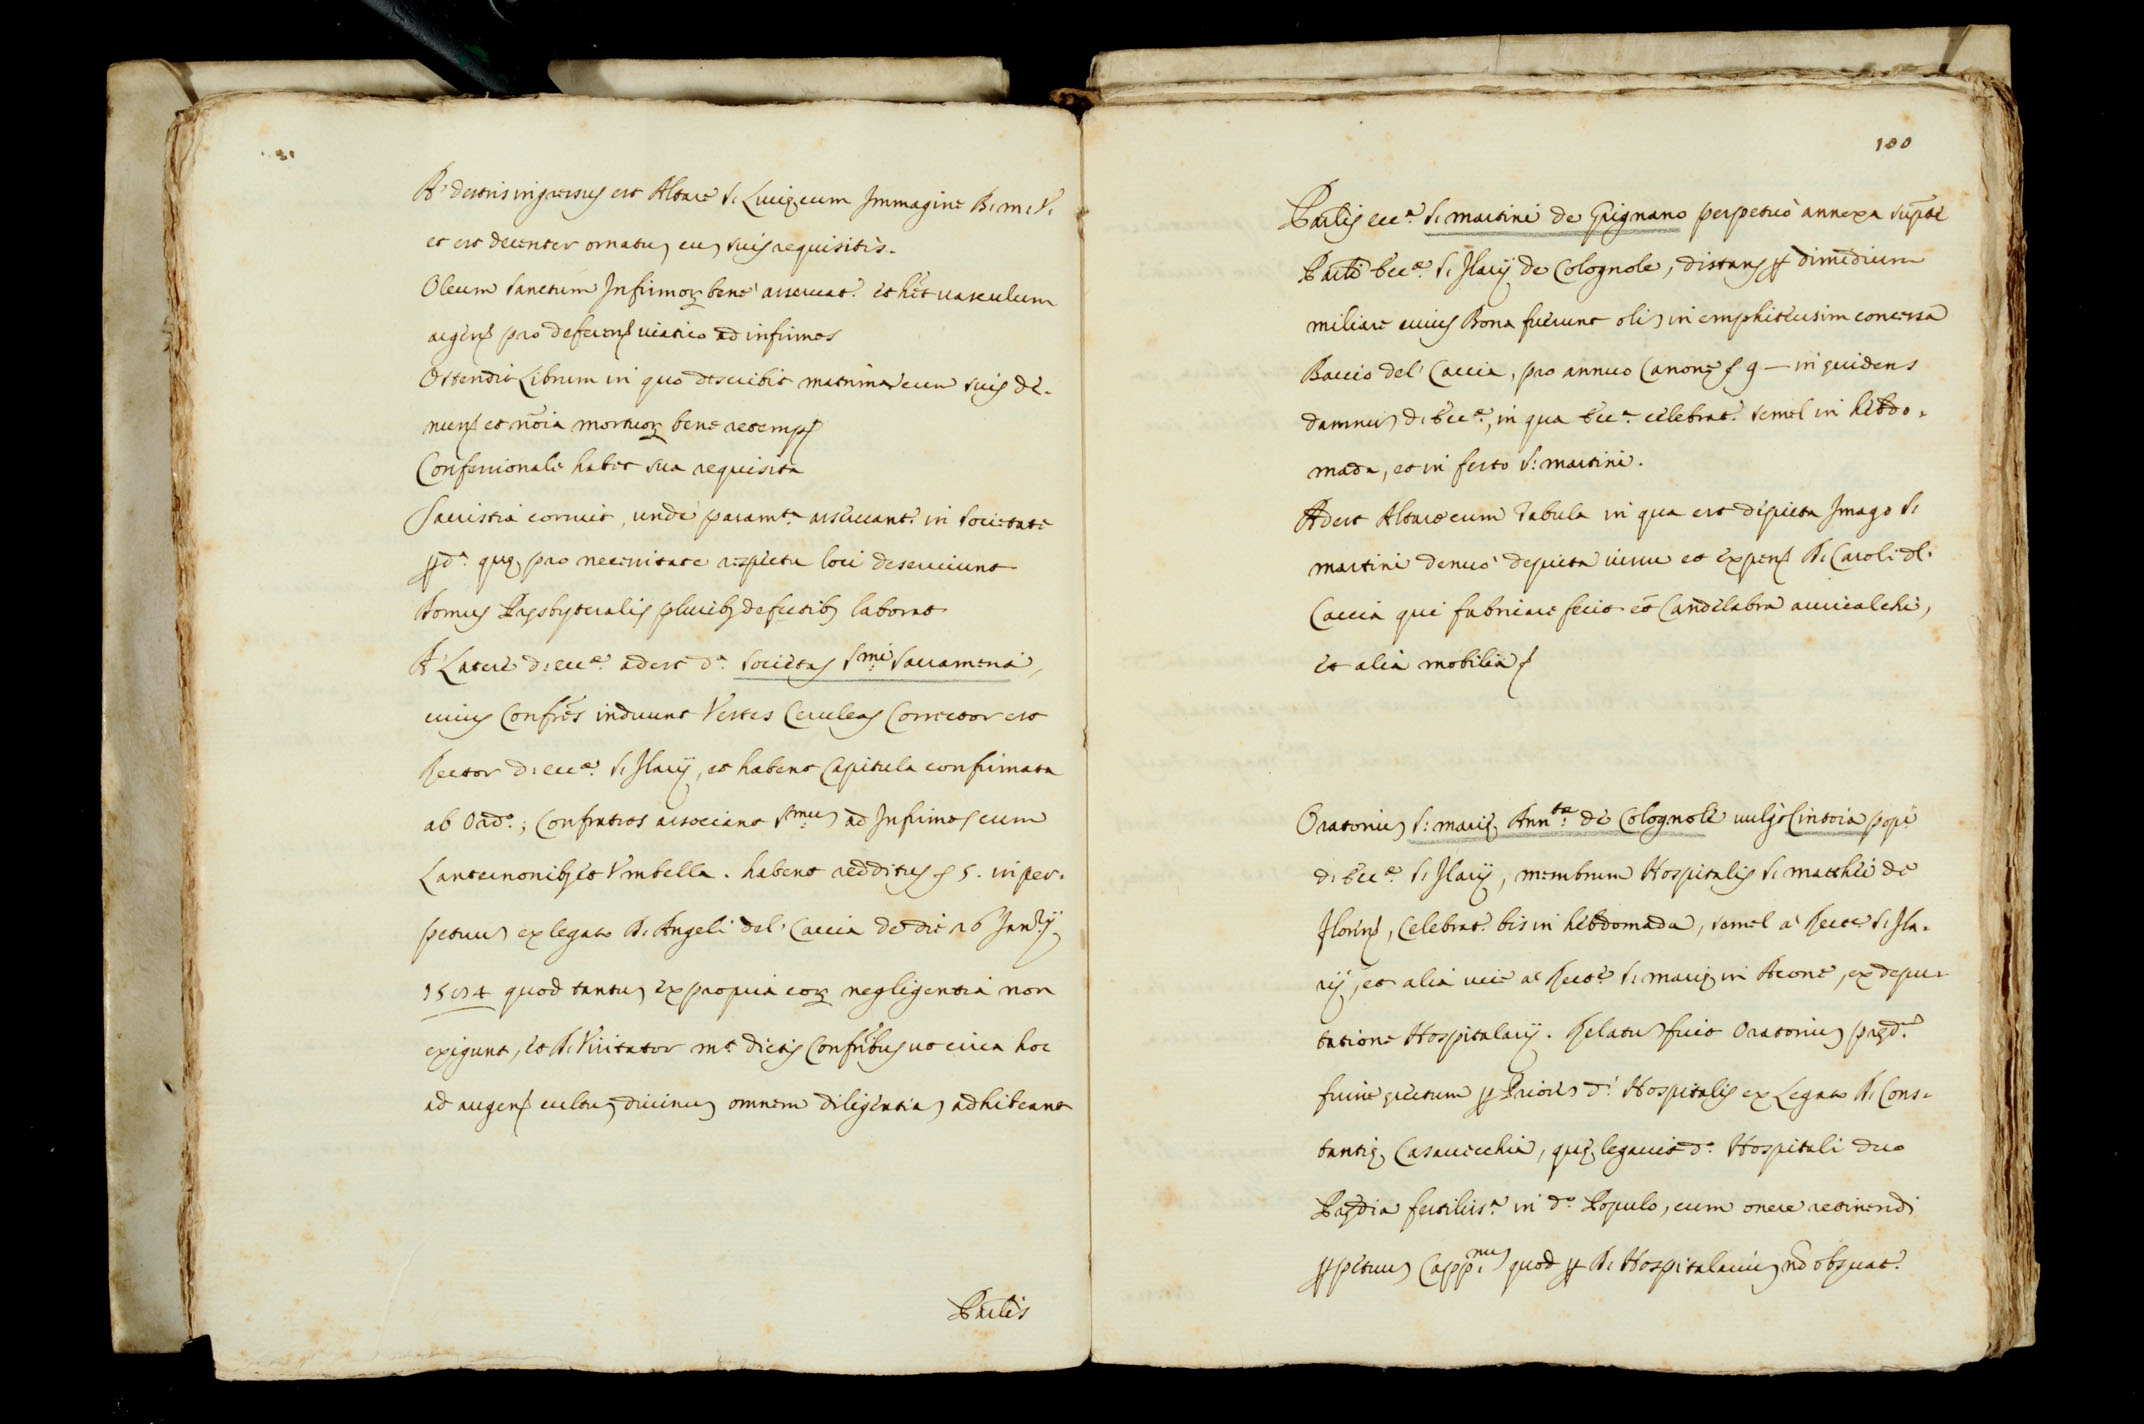 A' dextris ingressus est Altare S. Luciȩ cum Immagine B. M. V.
et est decenter ornatuȝ cuȝ suis requisitis.
Oleum Sanctum Infirmoꝝ bene asseruat.r et hēt uasculum
argenꝭ pro deferenꝭ uiatico ad infirmos
Ostendit Librum in quo describit matrima cum suis de-
nunꝭ et nōia mortuoꝝ bene
Confessionale habet sua requisita
Sacristia corruit, unde param.ta asseruant.r in Societate
p̄d.a quȩ pro necessitate respectu loci deseruiunt
Domus Pręsbyteralis pluribȝ defectibȝ laborat
A' Latere d. ecc.ę adest d.a Societas S.mi Sacramenti,
cuius Confr̄es induunt Vestes Ceruleas Corrector est
Rector d. ecc.ę S. Ilarij, et habent Capitula confirmata
ab Ord.o; Confratres associant S.muȝ ad Infirmos cum
Lanternonibȝ et Vmbella. habent redditus ꝭ 5. in per-
petuuȝ ex legato D. Angeli del Caccia de die 26 Jan.rij
quod tantuȝ ex propria eoꝝ negligentia non
exigunt, et D. Visitator m.t dictis Confr̄ibus ut circa hoc
ad augenꝭ cultuȝ diuinuȝ omnem diligentiaȝ adhibeant
Parlis
100
Parlis ecc.a S. Martini de Grignano perpetuo annexa supr.te
Parli Ecc.ę S. Ilarij de Colognole, distans ꝑ dimidium
miliare cuius Bona fuerunt oliȝ in emphiteusim concessa
Baccio del Caccia, pro annuo Canone ꝭ 9 — in euidens
damnuȝ d. Ecc.ę, in qua Ecc.a celebrat.r semel in hebdo-
mada, et in festo S. Martini.
Adest Altare cum Tabula in qua est depicta Imago S.
Martini denuo depicta iussu et expenꝭ D. Caroli del
Caccia qui fabricare fecit et Candelabra auricalchi,
et alia mobilia ꝭ
Oratoriuȝ S. Mariȩ Ann.tę de Colognole uulgo Cintoia popi
d. Ecc.ę S. Ilarij, membrum Hospitalis S. Matthei de
Florenꝭ, Celebrat.r bis in hebdomada, semel a Rect.e S. Ila-
rij, et alia uice a Rect.e S. Mariȩ in Acone, ex depu-
tatione Hospitalarij. Relatuȝ fuit Oratoriuȝ pręd.m
fuisse erectum ꝑ Prioreȝ d. Hospitalis ex Legato D. Cons-
tantiȩ Casauecchia, quȩ legauit d.o Hospitali duo
Prędia fertiliss.a in d.o Populo, cum onere retinendi
ꝑpetuuȝ Capp.nuȝ quod ꝑ D. Hospitalariuȝ nō obseruat.r